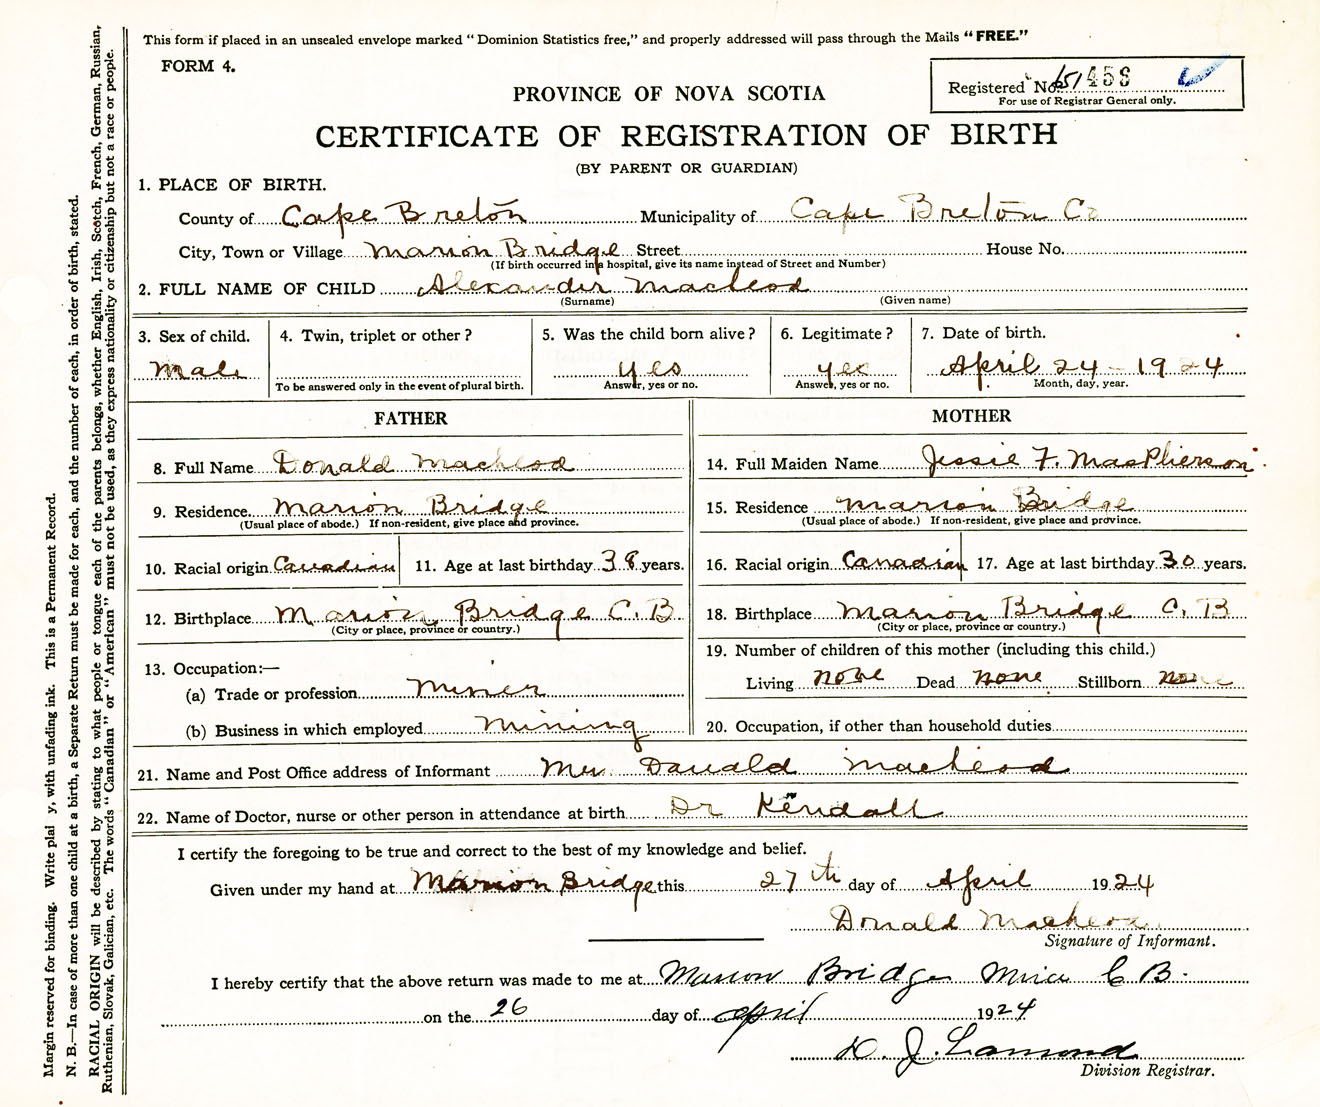 This form if placed in an unsealed envelope marked "Dominion Statistics free," and properly addressed will pass through the Mails "FREE."
FORM 4.
Registered No. 151458
For use of Registrar General only.
PROVINCE OF NOVA SCOTIA
CERTIFICATE OF REGISTRATION OF BIRTH
(BY PARENT OR GUARDIAN)
1. PLACE OF BIRTH.
County of Cape Breton Municipality of Cape Breton Co
City, Town or Village Marion Bridge Street House No.
(If birth occurred in a hospital, give its name instead of Street and Number)
2. FULL NAME OF CHILD Alexander Macleod
(Surname) (Given name)
3. Sex of child. 4. Twin, triplet or other? 5. Was the child born alive? 6. Legitimate? 7. Date of birth.
Male yes yes April 24 - 1924
To be answered only in the event of plural birth. Answer, yes or no. Answer, yes or no. Month, day, year.
FATHER MOTHER
8. Full Name Donald Macleod 14. Full Maiden Name Jessie F. MacPherson
9. Residence Marion Bridge 15. Residence Marion Bridge
(Usual place of abode.) If non-resident, give place and province. (Usual place of abode.) If non-resident, give place and province.
10. Racial origin Canadian 11. Age at last birthday 38 years. 16. Racial origin Canadian 17. Age at last birthday 30 years.
12. Birthplace Marion Bridge C. B 18. Birthplace Marion Bridge C. B
(City or place, province or country.) (City or place, province or country.)
13. Occupation:— 19. Number of children of this mother (including this child.)
(a) Trade or profession Miner Living none Dead none Stillborn none
(b) Business in which employed Mining 20. Occupation, if other than household duties
21. Name and Post Office address of Informant Mrs Donald Macleod
22. Name of Doctor, nurse or other person in attendance at birth Dr Kendall
I certify the foregoing to be true and correct to the best of my knowledge and belief.
Given under my hand at Marion Bridge this 27th day of April 1924
Donald Macleod
Signature of Informant.
I hereby certify that the above return was made to me at Marion Bridge Mira C B.
on the 26 day of April 1924
D. J. Lamond
Division Registrar.
Margin reserved for binding. Write plai y, with unfading ink. This is a Permanent Record.
N. B.—In case of more than one child at a birth, a Separate Return must be made for each, and the number of each, in order of birth, stated.
RACIAL ORIGIN will be described by stating to what people or tongue each of the parents belongs, whether English, Irish, Scotch, French, German, Russian,
Ruthenian, Slovak, Galician, etc. The words "Canadian" or "American" must not be used, as they express nationality or citizenship but not a race or people.